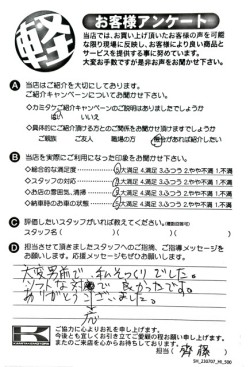 軽
お客様アンケート
当店では、お買い上げ頂いたお客様の声を可能
な限り現場に反映し、お客様により良い商品と
サービスを提供する事に努めています。
大変お手数ですが是非お声をお聞かせ下さい。
A 当店はご紹介を大切にしてあります。
ご紹介キャンペーンについてお聞かせ下さい。
◇カミタケご紹介キャンペーンのご説明はありましたでしょうか
はい いいえ
◇具体的にご紹介頂ける方とのご関係をお聞かせ頂けますでしょうか
ご親族 ご友人 職場の方 機会があれば紹介したい
B 当店を実際にご利用になった印象をお聞かせ下さい。
◇総合的な満足度 5大満足 4.満足 3.ふつう 2.やや不満 1.不満
◇スタッフの対応 5大満足 4.満足 3.ふつう 2.やや不満 1.不満
◇お店の雰囲気、清掃 5大満足 4.満足 3.ふつう 2.やや不満 1.不満
◇納車時のお車の状態 5大満足 4.満足 3.ふつう 2.やや不満 1.不満
C 評価したいスタッフがいれば教えてください。(複数回答可)
スタッフ名 ( ) ( ) ( )
D 担当させて頂きましたスタッフへのご指摘、ご指導メッセージを
お願いします。応援メッセージもぜひお願いします。
大変男前で、私そっくりでした。
ソフトな対応で良かったです。
ありがとうございました。
ご協力に心よりお礼を申し上げます。
今後とも宜しくお引き立てご愛顧の程お願い申し上げます。
またのご来店を心からお待ちしております。
担当( 齊藤 )
SH_230707_MI_500